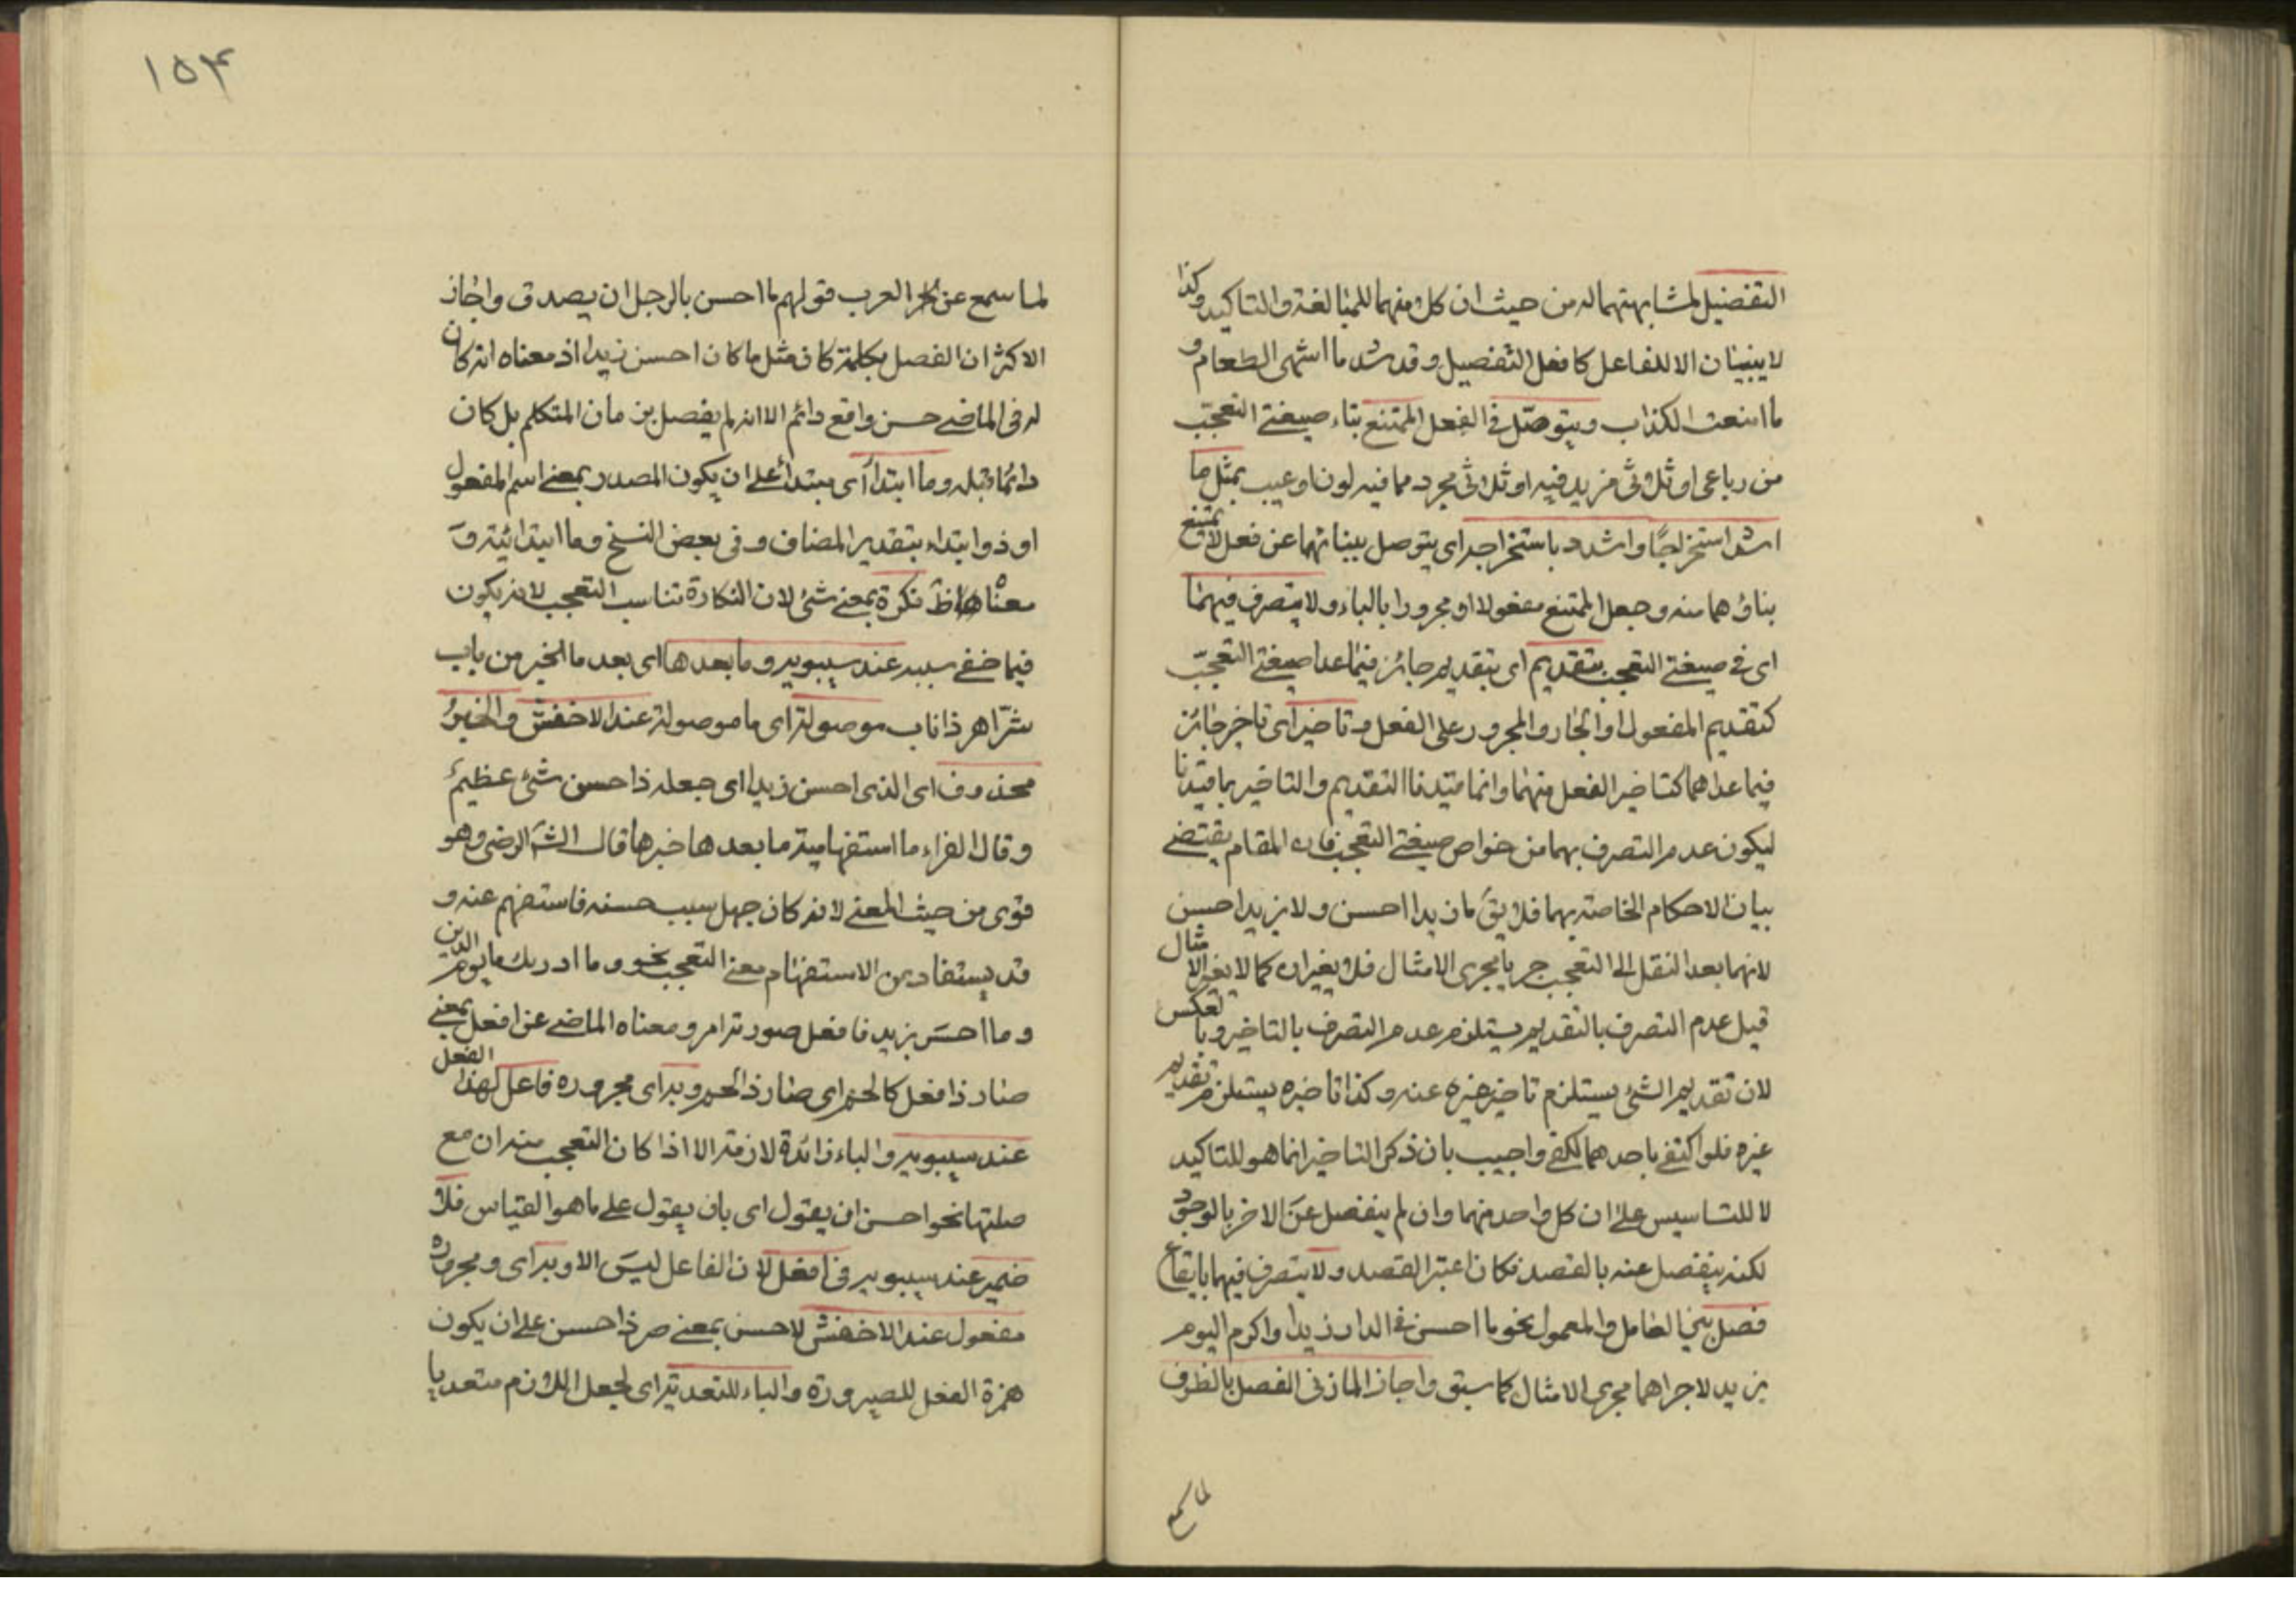 التفضيل لمشابهتهما له من حيث ان كلا منهما للمبالغة والتاكيد وكذا
لا يبنيان الا للفاعل كافعل التفضيل وقد شذ ما اشهى الطعام و
ما امقت الكذاب ويتوصل فى الفعل الممتنع بناء صيغتى التعجب
من رباعى او ثلاثى مزيد فيه او ثلاثى مجرد مما فيه لون او عيب بمثل ما
اشد استخراجا واشدد باستخراجه اى يتوصل ببنائهما عن فعل لا يمتنع
بناؤهما منه وجعل الممتنع مفعولا او مجرورا بالباء ولا يتصرف فيهما
اى فى صيغتى التعجب بتقديم اى بتقديم جائز فيما عدا صيغتى التعجب
كتقديم المفعول او الجار والمجرور على الفعل وتاخير اى تاخير جائز
فيما عداهما كتاخير الفعل منهما وانما قيدنا التقديم والتاخير بما قيدنا
ليكون عدم التصرف بهما من خواص صيغتى التعجب فان المقام يقتضى
بيان الاحكام الخاصة بهما فلا يق ما زيدا احسن ولا بزيد احسن
لانهما بعد النقل الى التعجب جريا مجرى الامثال فلا يغيران كما لا يغير الامثال
قيل عدم التصرف بالتقديم يستلزم عدم التصرف بالتاخير وبالعكس
لان تقديم الشئ يستلزم تاخير غيره عنه وكذا تاخيره يستلزم تقديم
غيره فلو اكتفى باحدهما لكفى واجيب بان ذكر التاخير انما هو للتاكيد
لا للتاسيس على ان كل واحد منهما وان لم ينفصل عن الاخر بالوجود
لكنه ينفصل عنه بالقصد فكان اعتبر القصد ولا يتصرف فيهما بايقاع
فصل بين العامل والمعمول نحو ما احسن فى الدار زيدا واكرم اليوم
بزيد لاجراهما مجرى الامثال كما سبق واجاز المازنى الفصل بالظرف
لما سمع
١٥٣
لما سمع عن العرب قولهم ما احسن بالرجل ان يصدق واجاز
الاكثر ان الفصل بكلمة كان مثل ما كان احسن زيدا اذ معناه انه كان
له فى الماضى حسن واقع دائم الا انه لم يفصل بزمان المتكلم بل كان
دائما قبله وما ابتداء اى مبتدأ على ان يكون المصدر بمعنى اسم المفعول
او ذو ابتداء بتقدير المضاف وفى بعض النسخ وما ابتدائية و
معناه نكرة بمعنى شئ لان النكارة تناسب التعجب لانه يكون
فيما خفى سببه عند سيبويه وما بعدها اى بعد ما الخبر من باب
شر اهر ذا ناب موصولة اى ما موصولة عند الاخفش والخبر
محذوف اى الذى احسن زيدا اى جعله ذا حسن شئ عظيم
وقال الفراء ما استفهامية ما بعدها خبرها قال الشر الرضى وهو
قوى من حيث المعنى لانه كان جهل سبب حسنه فاستفهم عنه و
قد يستفاد من الاستفهام معنى التعجب نحو وما ادريك ما يوم الدين
و ما احسن بزيد فافعل صورته امر ومعناه الماضى عن افعل بمعنى
صار ذا فعل كالحم اى صار ذا لحم وبه اى مجروره فاعل لهذا الفعل
عند سيبويه والباء زائدة لازمة الا اذا كان التعجب منه ان مع
صلتها نحو احسن ان يقول اى بان يقول على ما هو القياس فلا
ضمير عند سيبويه فى افعل لان الفاعل ليس الا وبه اى ومجروره
مفعول عند الاخفش لاحسن بمعنى صر ذا حسن على ان يكون
همزة الفعل للصيرورة والباء للتعدية اى لجعل اللازم متعديا